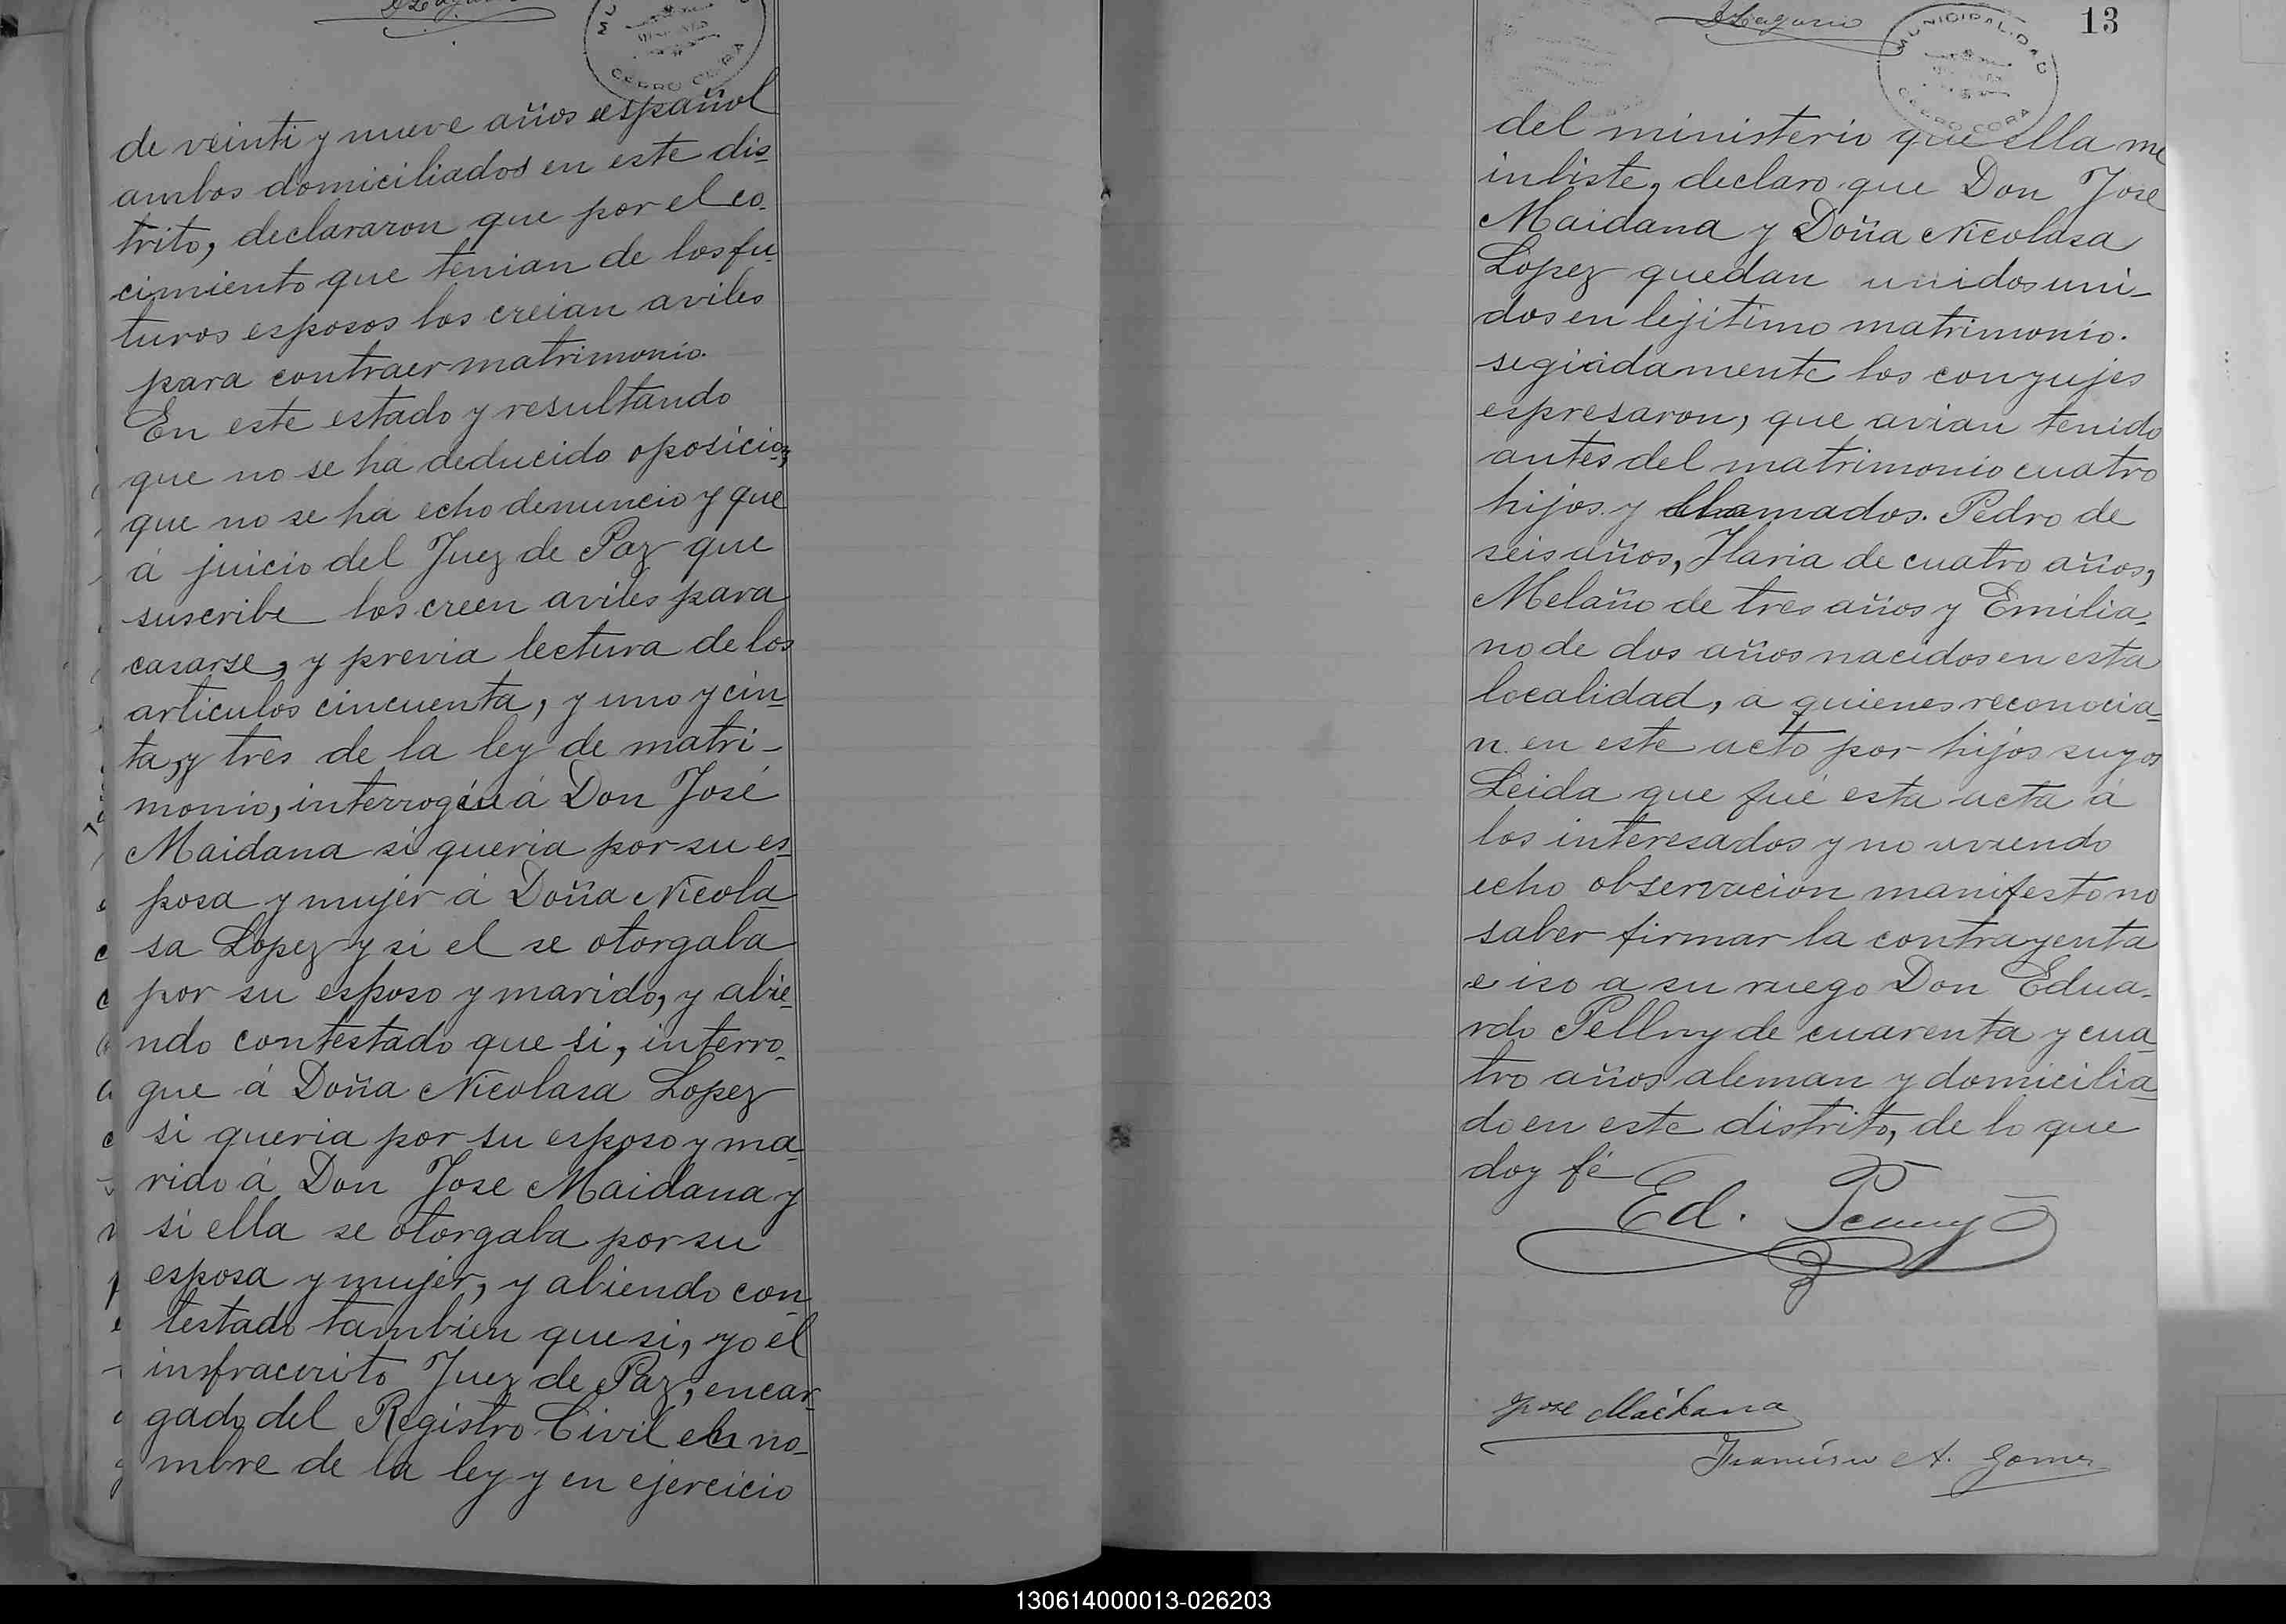 MUNICIPALIDAD
CERRO CORA
de veinti y nueve años español
ambos domiciliados en este dis-
trito, declararon que por el co-
cimiento que tenian de los fu-
turos esposos los creian aviles
para contraer matrimonio.
En este estado y resultando
que no se ha deducido oposicion,
que no se ha echo denuncio y que
á juicio del Juez de Paz que
suscribe los creen aviles para
casarse, y previa lectura de los
articulos cincuenta, y uno y cin-
ta, y tres de la ley de matri-
monio, interrogué á Don José
Maidana si queria por su es-
posa y mujer á Doña Nicola-
sa Lopez y si el se otorgaba
por su esposo y marido, y abie-
ndo contestado que si, interro-
gue á Doña Nicolasa Lopez
si queria por su esposo y ma-
rido á Don Jose Maidana y
si ella se otorgaba por su
esposa y mujer, y abiendo con-
testado tambien que si, yo el
infracrito Juez de Paz, encar-
gado del Registro Civil en no-
mbre de la ley y en ejercicio
13
MUNICIPALIDAD
CERRO CORA
del ministerio que ella me
inbiste, declaro que Don Jose
Maidana y Doña Nicolasa
Lopez quedan unidos uni-
dos en lejitimo matrimonio.
segidamente los conyujes
espresaron, que avian tenido
antes del matrimonio cuatro
hijos y llamados. Pedro de
seis años, Ilaria de cuatro años,
Melaño de tres años y Emilia-
no de dos años nacidos en esta
localidad, a quienes reconocia-
n en este acto por hijos suyos
Leida que fué esta acta á
los interesados y no aviendo
echo observacion manifesto no
saber firmar la contrayenta
e iso a su ruego Don Edua-
rdo de cuarenta y cua-
tro años aleman y domicilia-
do en este distrito, de lo que
doy fé
Ed.
Jose Maidana
Francisco A. Gomez
130614000013-026203